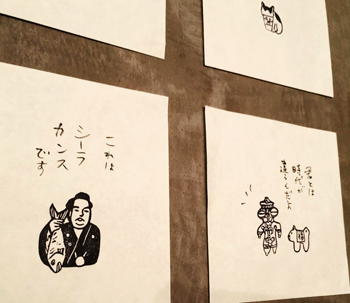 これは
シーラ
カンス
です
君とは
時代が
違うんだよ